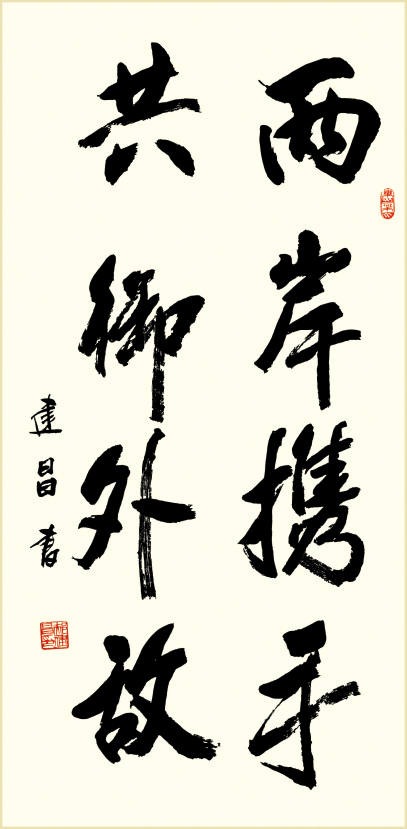 兩岸携手
共御外敌
建昌書